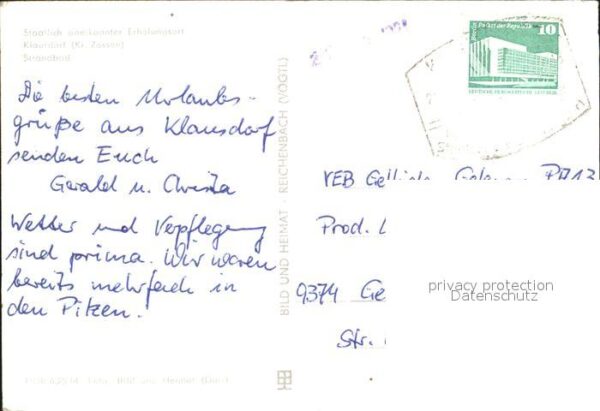 Staatlich anerkannter Erholungsort
Klausdorf (Kr. Zossen)
Strandbad
Die besten Urlaubs-
grüße aus Klausdorf
senden Euch
Gerald u. Christa
Wetter und Verpflegung
sind prima. Wir waren
bereits mehrfach in
den Pilzen.
BILD UND HEIMAT · REICHENBACH (VOGTL)
Berlin, Palast der Republik
10
DEUTSCHE DEMOKRATISCHE REPUBLIK
VEB
Prod.
9374
Str.
privacy protection
Datenschutz
Foto: Bild und Heimat